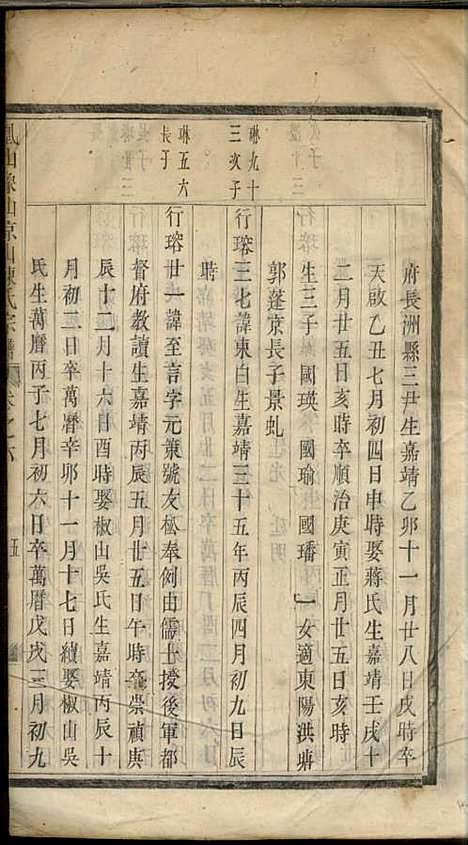 府長洲縣三尹生嘉靖乙卯十一月廿八日戌時卒
天啟乙丑七月初四日申時娶蔣氏生嘉靖壬戌十
二月廿五日亥時卒順治庚寅正月廿五日亥時
生三子 國瑛 國瑜 國璠 一女適東陽洪塘
郭蓬京長子景虬
琳九十
三次子
行瑢三七諱東白生嘉靖三十五年丙辰四月初九日辰
時
琳五六
長子
行瑢廿一諱至言字元策號友松奉例由儒士授後軍都
督府教讀生嘉靖丙辰五月廿五日午時卒崇禎庚
辰十二月十六日酉時娶椒山吳氏生嘉靖丙辰十
月初二日卒萬曆辛卯十一月十七日續娶椒山吳
氏生萬曆丙子七月初六日卒萬曆戊戌三月初九
山陳氏宗譜 卷之六 五